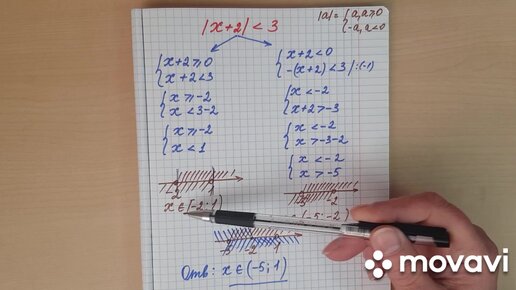 |x+2| < 3
|a| = { a, a ≥ 0
-a, a < 0
{ x+2 ≥ 0
x+2 < 3
{ x ≥ -2
x < 3-2
{ x ≥ -2
x < 1
-2 1
x ∈ [-2; 1)
{ x+2 < 0
-(x+2) < 3 | :(-1)
{ x < -2
x+2 > -3
{ x < -2
x > -3-2
{ x < -2
x > -5
-5 -2
(-5; -2)
-5 -2 1
Отв: x ∈ (-5; 1)
movavi